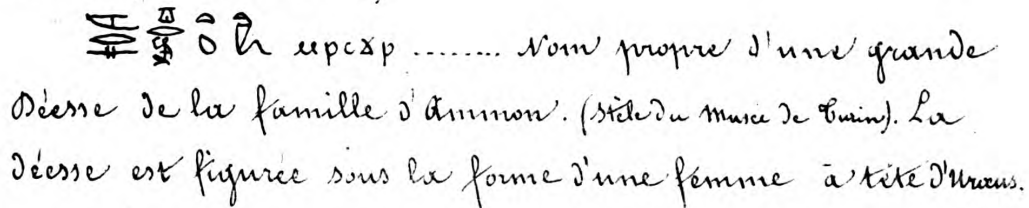 ⲙⲣⲥϫⲣ ........ Nom propre d'une grande
Déesse de la famille d'Ammon. (Stèle du Musée de Turin). La
déesse est figurée sous la forme d'une femme à tête d'Uraeus.